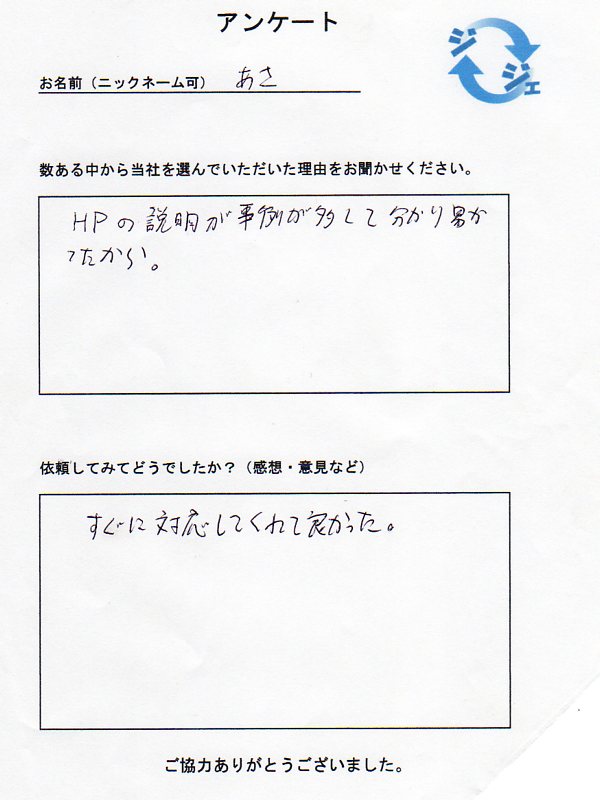 アンケート
ジジェ
お名前（ニックネーム可） あさ
数ある中から当社を選んでいただいた理由をお聞かせください。
HPの説明が事例が多くて分かり易か
ったから。
依頼してみてどうでしたか？（感想・意見など）
すぐに対応してくれて良かった。
ご協力ありがとうございました。